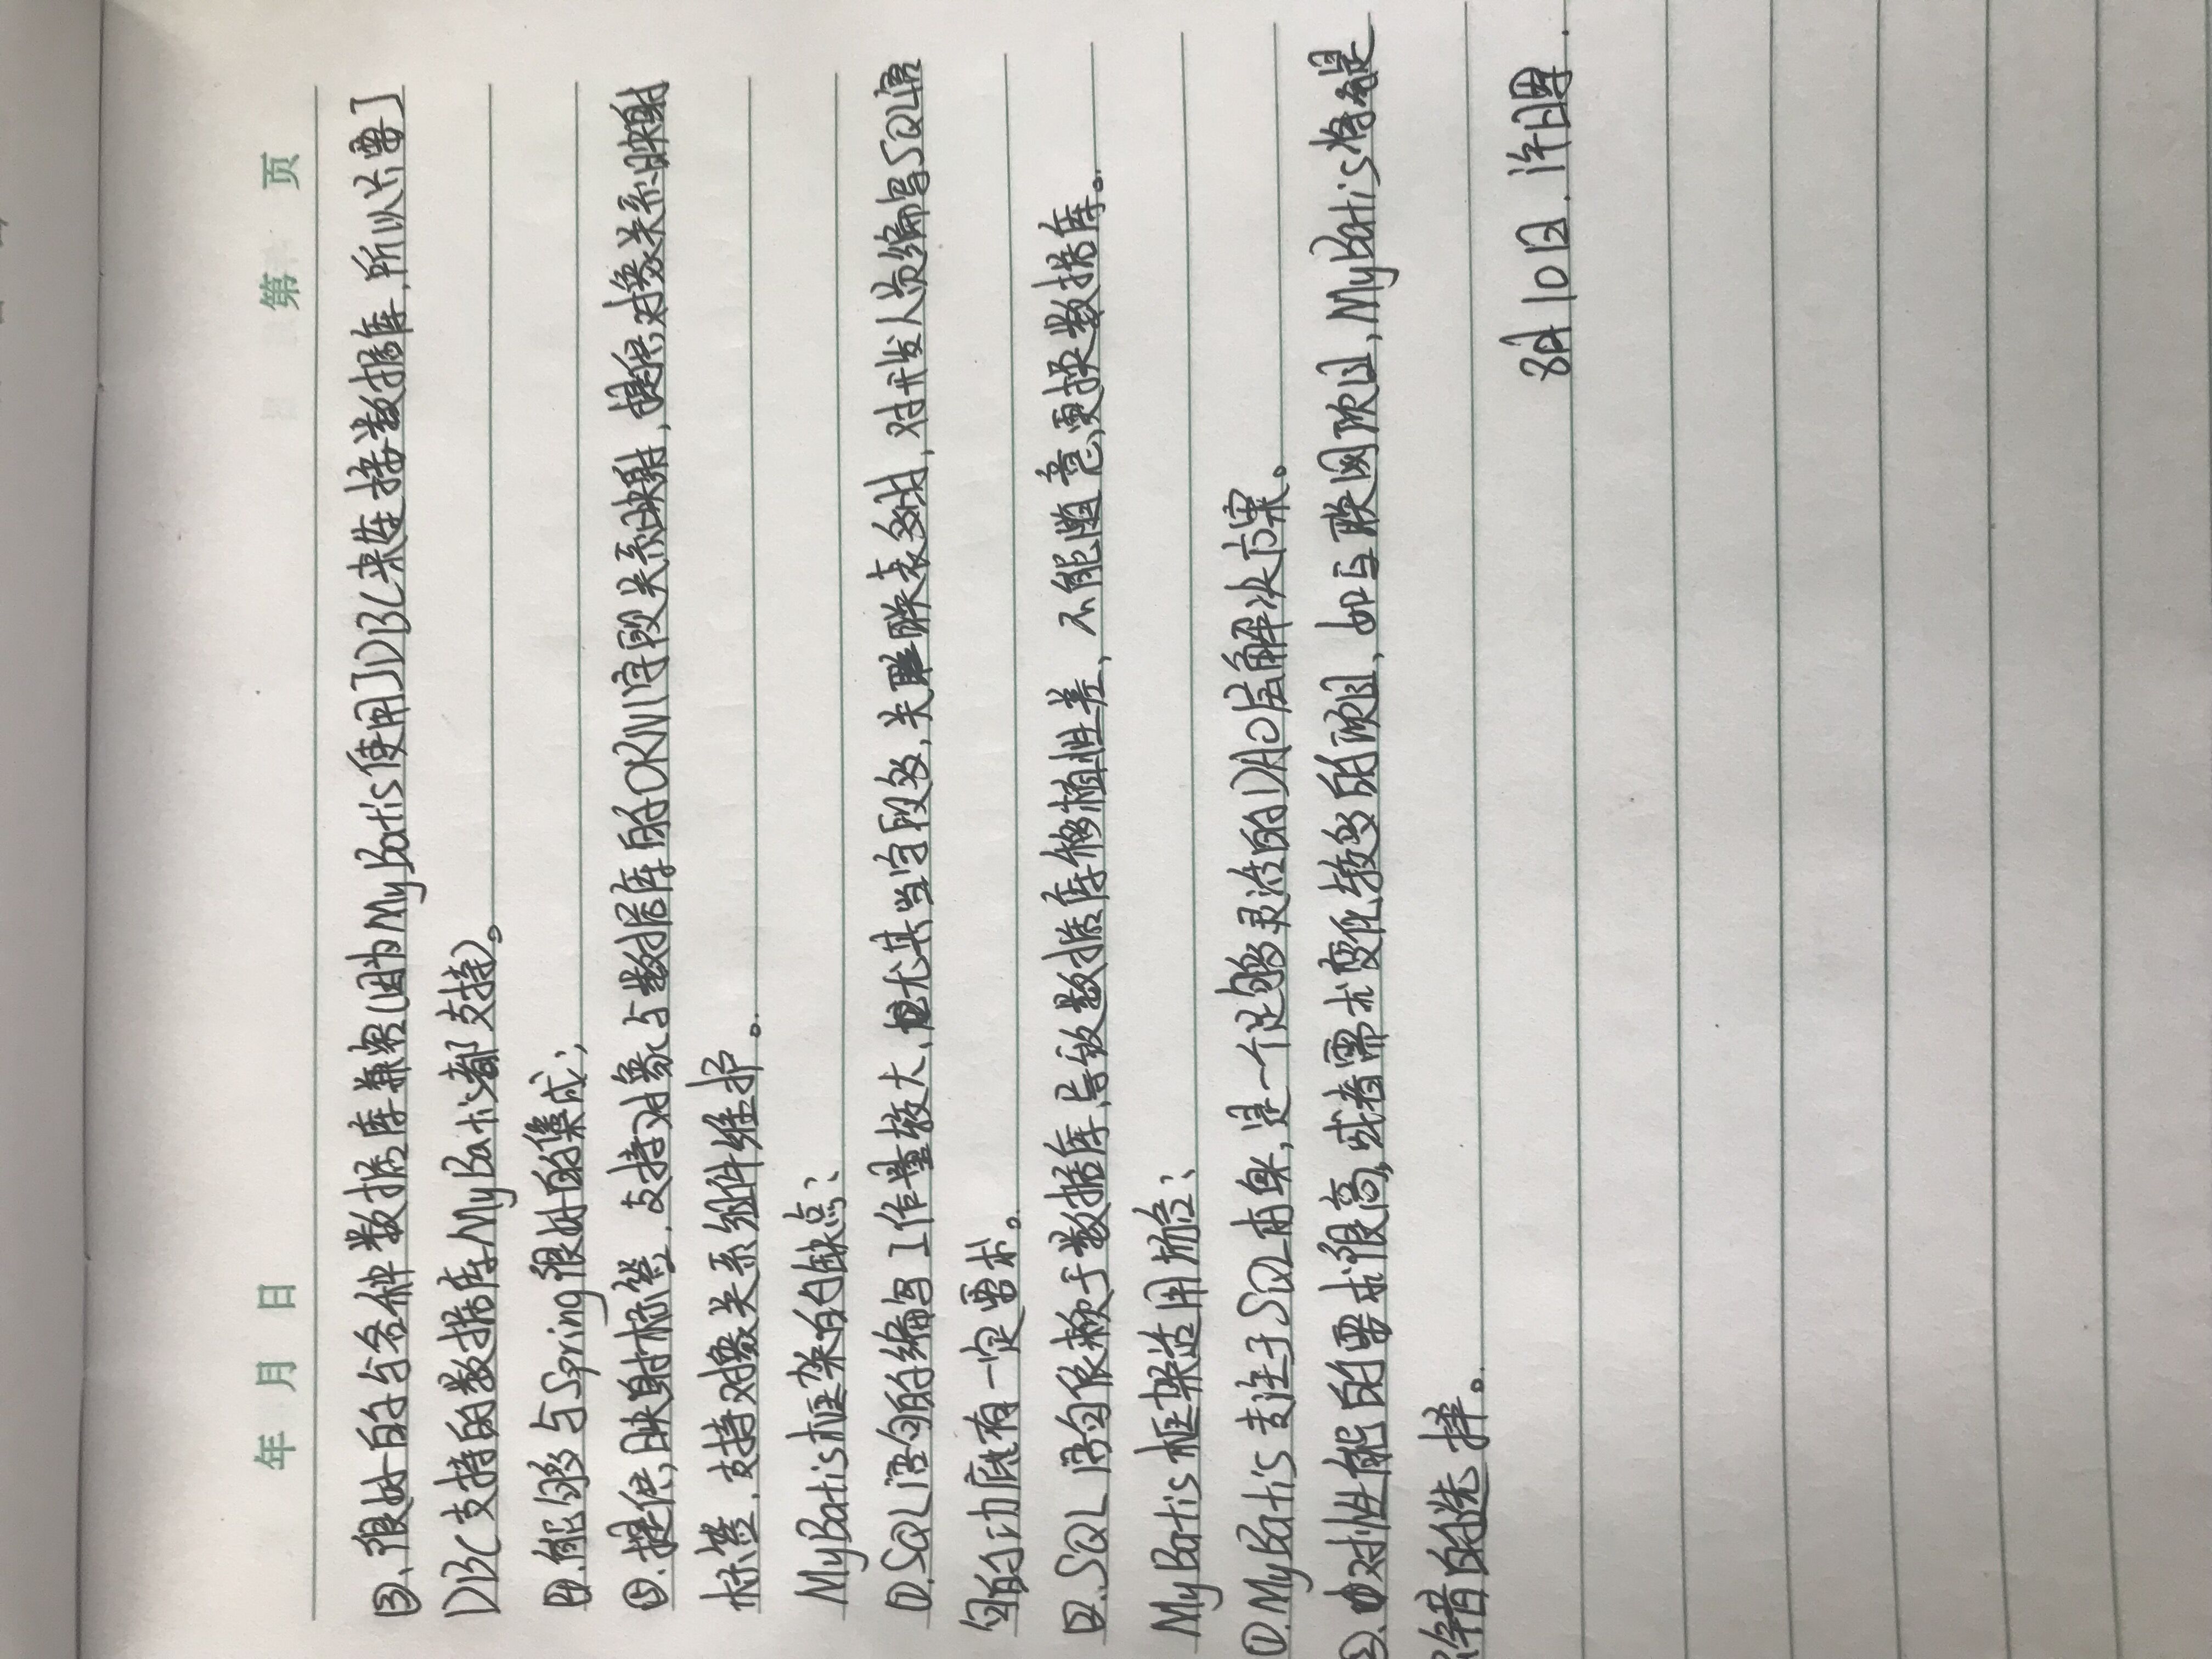 年 月 日 第 页
③、很好的与各种数据库兼容(因为MyBatis使用JDBC来连接数据库,所以只要J
DBC支持的数据库MyBatis都支持)。
④.能够与Spring很好的集成;
⑤.提供映射标签,支持对象与数据库的ORM字段关系映射,提供对象关系映射
标签,支持对象关系组件维护。
MyBatis框架的缺点:
①.SQL语句的编写工作量较大,尤其当字段多,关联表多时,对开发人员编写SQL语
句的功底有一定要求。
②.SQL语句依赖于数据库,导致数据库移植性差,不能随意更换数据库。
MyBatis框架适用场合:
①.MyBatis专注于SQL本身,是一个足够灵活的DAO层解决方案。
②.对性能的要求很高,或者需求变化较多的项目,如互联网项目,MyBatis将是
不错的选择。
8月10日.许